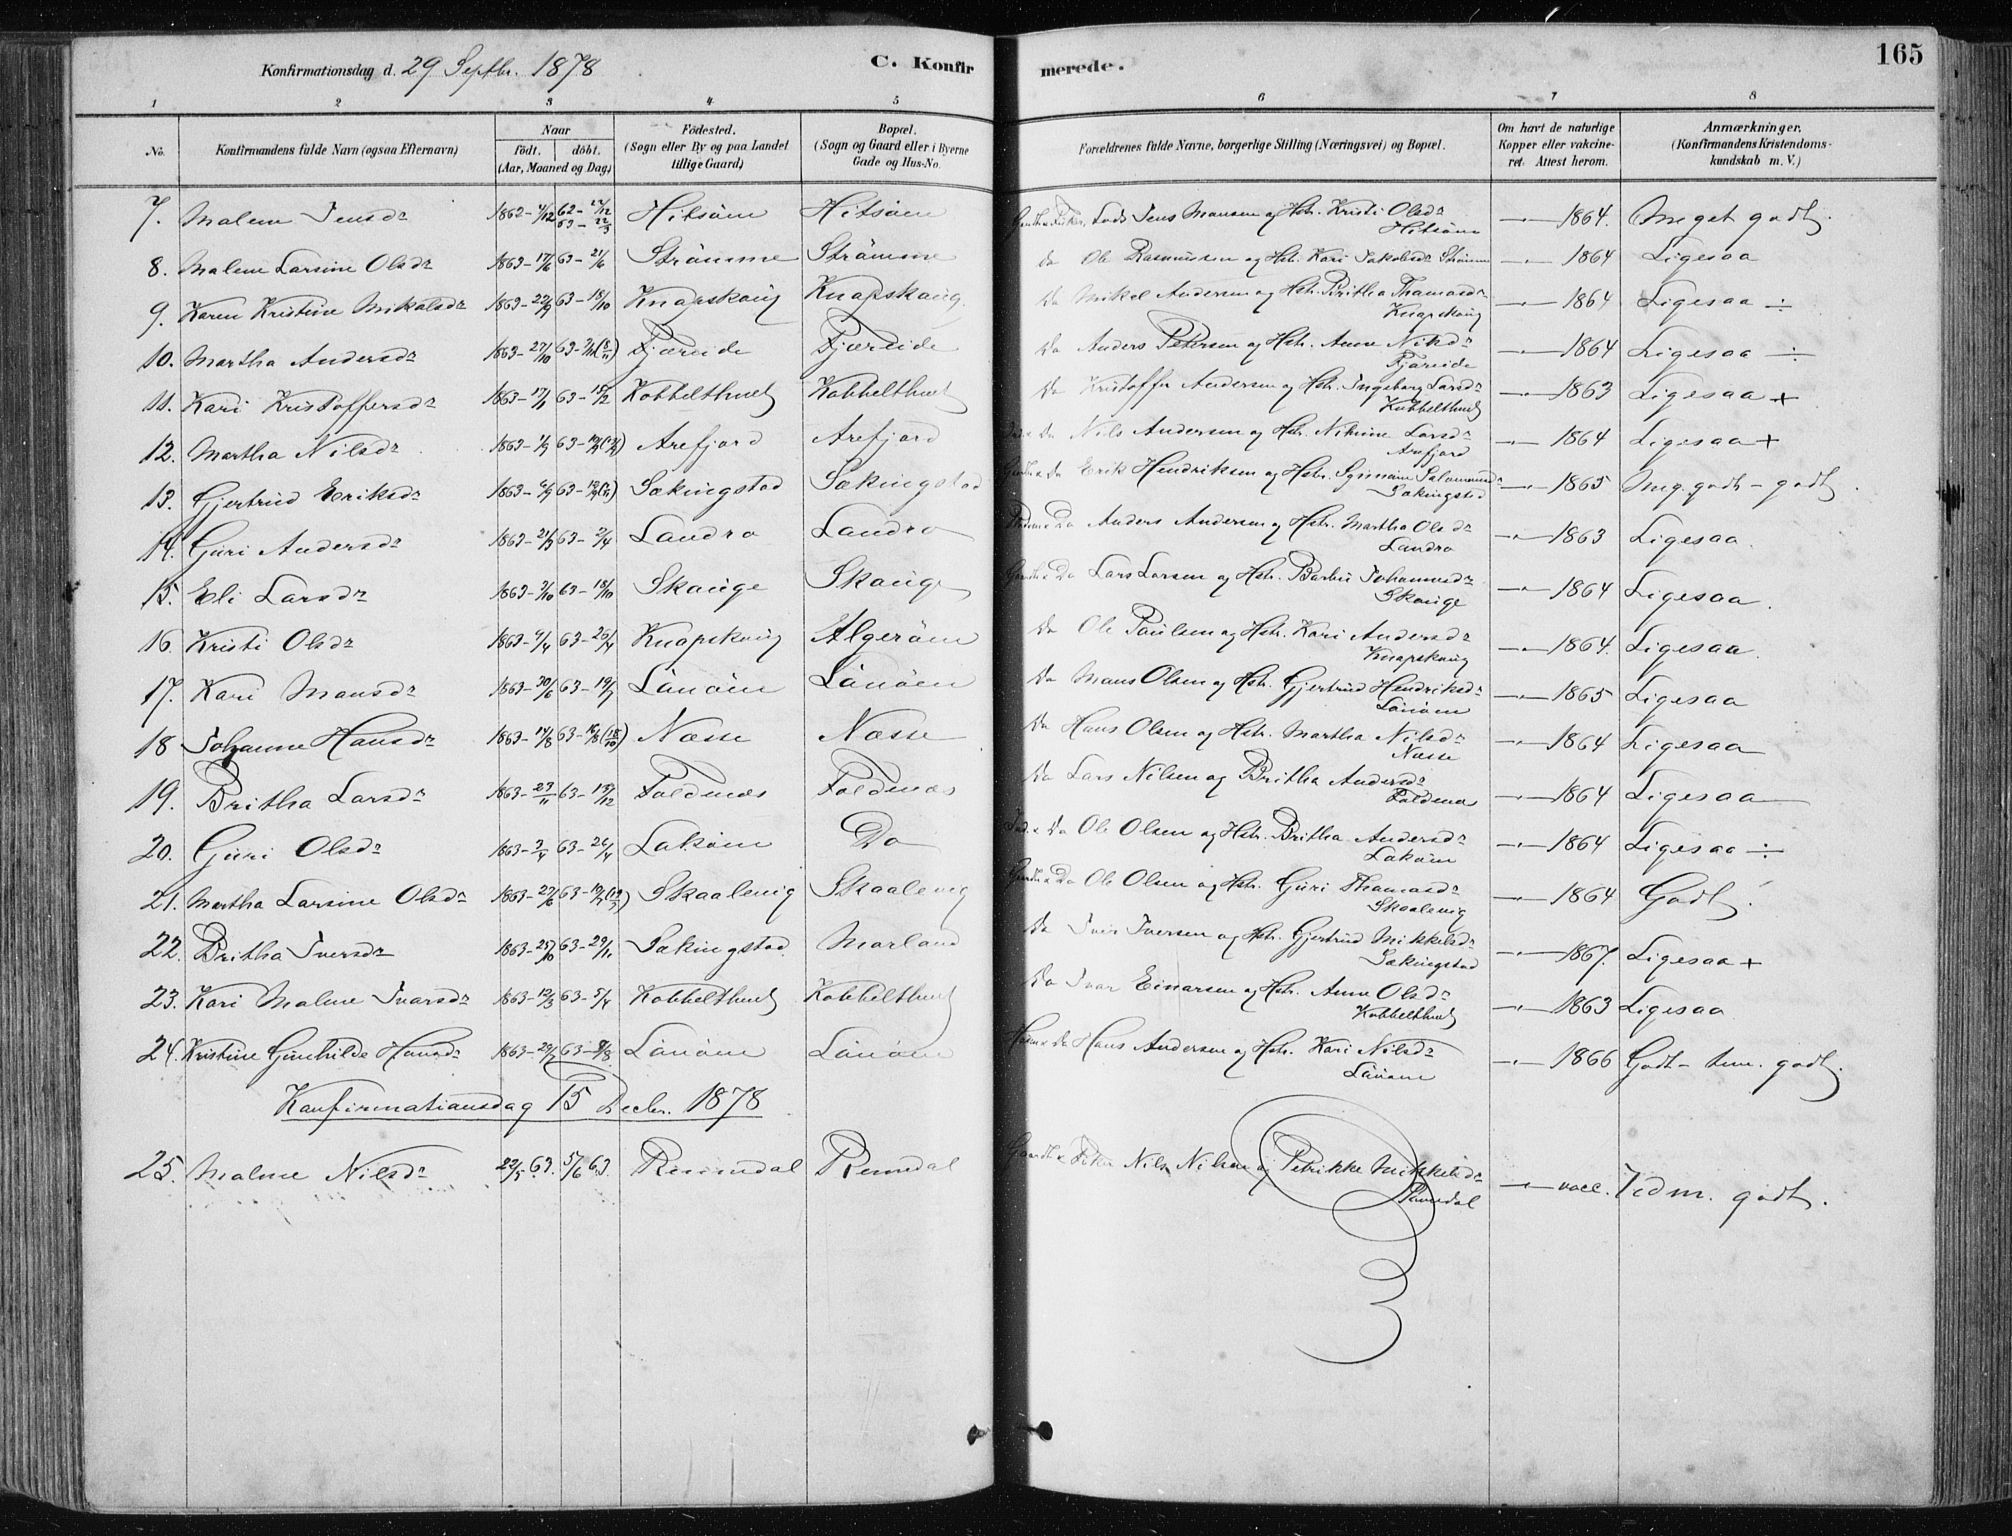 165
Konfirmationsdag d. 29 Septbr. 1878 C. Konfirmerede.
1 2 3 4 5 6 7 8
No. Konfirmandens fulde Navn (ogsaa Efternavn) Naar født. døbt. (Aar, Maaned og Dag) Fødested. (Sogn eller By og paa Landet tillige Gaard) Bopæl. (Sogn og Gaard eller i Byerne Gade og Hus-No. Forældrenes fulde Navne, borgerlige Stilling (Næringsvei) og Bopæl. Om havt de naturlige Kopper eller vakcineret. Attest herom. Anmærkninger. (Konfirmandens Kristendomskundskab m. V.)
7. Malene Jensdr 1862-4/12 62-12/12 63-22/3 Hitsøen Hitsøen Jens Monsen og Hstr. Kristi Olsdr Hitsøen 1864. Meget godt.
8. Malene Larsine Olsdr 1863-17/6 63-21/6 Strømme Strømme Do Ole Rasmussen og Hstr. Kari Jakobsdr Strømme 1864 Ligesaa
9. Karen Kristine Mikalsdr 1863-22/9 63-18/10 Knapskoug Knapskoug. Do Mikel Andersen og Hstr. Britha Thomasdr Knapskoug 1864 Ligesaa ÷
10. Martha Andersdr 1863-27/10 Fjæreide Fjæreide Do Anders Petersen og Hstr. Anne Nilsdr Fjæreide 1864 Ligesaa ÷
11. Kari Kristoffersdr 1863-17/1 63-15/2 Kobbelthvet Kobbelthvet Do Kristoffer Andersen og Hstr. Ingeborg Larsdr Kobbelthvet 1863 Ligesaa +
12. Martha Nilsdr Arefjord Arefjord Do Nils Andersen og Hstr. Nilsine Larsdr Arefjord 1864 Ligesaa +
13. Gjertrud Eriksdr Sækingstad Sækingstad Do Erik Hendriksen og Hstr. Salamonsdr Sækingstad 1865 Meg. godt - godt.
14. Guri Andersdr 63-2/4 Landro Landro Do Anders Andersen og Hstr. Martha Olsdr Landro 1863 Ligesaa.
15. Eli Larsdr 63-18/10 Skouge Skouge Do Lars Larsen og Hstr. Barbru Johannesdr Skouge 1864 Ligesaa.
16. Kristi Olsdr 1863-4/4 63-26/4 Knapskoug Algerøen Do Ole Paulsen og Hstr. Kari Andersdr Knapskoug 1864. Ligesaa.
17. Kari Monsdr 1863-30/6 63-19/7 Lønøen Lønøen Do Mons Olsen og Hstr. Gjertrud Hendriksdr Lønøen 1865 Ligesaa
18 Johanne Hansdr 1863-14/8 63-16/8 (18/10) Næsse Næsse Do Hans Olsen og Hstr. Martha Nilsdr Næsse 1864 Ligesaa
19. Britha Larsdr 1863-23/11 63-13/12 Foldenæs Foldenæs Do Lars Nilsen og Britha Andersdr Foldenæs 1864 Ligesaa
20. Guri Olsdr 1863-3/4 63-26/4 Lokøen Do Do Ole Olsen og Hstr. Britha Andersdr Lokøen 1864 Ligesaa ÷
21. Martha Larsine Olsdr Skaalevig Skaalevig Do Ole Olsen og Hstr. Guri Thomasdr Skaalevig 1864 Godt.
22. Britha Iversdr 1863-25/10 63-29/11 Sækingstad. Morland Do Iver Iversen og Hstr. Gjertrud Mikkelsdr Sækingstad 1867. Ligesaa +
23. Kari Malene Ivarsdr 1863-12/3 63-5/4 Kobbelthvet Kobbelthvet Do Ivar Einarsen og Hstr. Anne Olsdr Kobbelthvet 1863 Ligesaa
24. Kristine Gunhilde Hansdr 1863-29/7 63-9/8 Lønøen Lønøen Do Hans Andersen og Hstr. Kari Nilsdr Lønøen 1866 Godt - tem. godt.
Konfirmationsdag 15 Decbr. 1878
25. Malene Nilsdr 22/5 63. 5/6 63. Remedal Nils Nilsen og Petrikke Mikkelsdr vacc. Tem. godt.